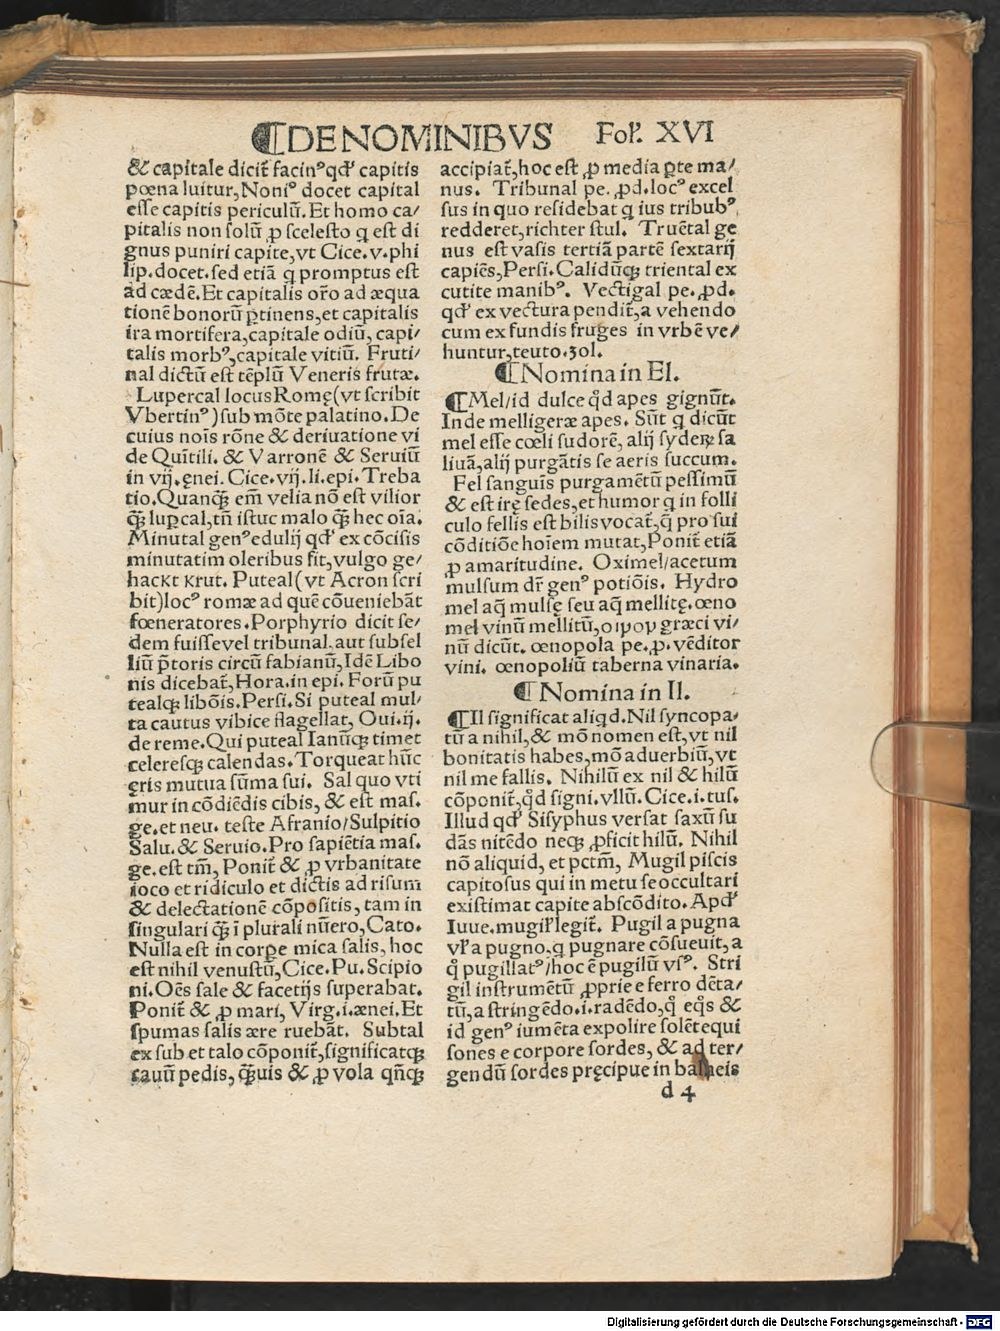 ¶DE NOMINIBVS Fol. XVI
& capitale dicit̃ facinꝰ qđ capitis
pœna luitur, Noniꝰ docet capital
esse capitis periculũ. Et homo ca/
pitalis non solũ ꝓ scelesto q est di
gnus puniri capite, vt Cice. v. phi
lip. docet. sed etiã q promptus est
ad cædẽ. Et capitalis or̃o ad æqua
tionẽ bonorũ ꝑtinens, et capitalis
ira mortifera, capitale odiũ, capi/
talis morbꝰ, capitale vitiũ. Fruti/
nal dictũ est tẽplũ Veneris frutæ.
Lupercal locus Romę (vt scribit
Vbertinꝰ) sub mõte palatino. De
cuius noĩs rõne & deriuatione vi
de Quĩtili. & Varronẽ & Seruiũ
in vij. ęnei. Cice. vij. li. epi. Treba
tio. Quanq̃ꝫ em̃ velia nõ est vilior
q̃ꝫ luꝑcal, tñ istuc malo q̃ꝫ hec oĩa.
Minutal genꝰ edulij qđ ex cõcisis
minutatim oleribus fit, vulgo ge/
hackt krut. Puteal (vt Acron scri
bit) locꝰ romæ ad quẽ cõueniebãt
fœneratores. Porphyrio dicit se/
dem fuisse vel tribunal, aut subsel
liũ p̃toris circũ fabianũ, Idẽ Libo
nis dicebat̃, Hora. in epi. Forũ pu
tealqꝫ libõis. Persi. Si puteal mul/
ta cautus vibice flagellat, Oui. ij.
de reme. Qui puteal Ianũqꝫ timet
celeresqꝫ calendas. Torqueat hũc
ęris mutua sũma sui. Sal quo vti
mur in cõdiẽdis cibis, & est mas.
ge. et neu. teste Afranio/Sulpitio
Salu. & Seruio. Pro sapiẽtia mas.
ge. est tm̃, Ponit̃ & ꝓ vrbanitate
ioco et ridiculo et dictis ad risum
& delectationẽ cõpositis, tam in
singulari q̃ꝫ ĩ plurali nũero, Cato.
Nulla est in corꝑe mica salis, hoc
est nihil venustũ, Cice. Pu. Scipio
ni. Oẽs sale & facetijs superabat.
Ponit̃ & ꝓ mari, Virg. i. ænei. Et
spumas salis ære ruebãt. Subtal
ex sub et talo cõponit̃, significatqꝫ
cauũ pedis, q̃ꝫuis & ꝓ vola qñqꝫ
accipiat̃, hoc est ꝓ media ꝑte ma/
nus. Tribunal pe. ꝓd. locꝰ excel
sus in quo residebat q ius tribubꝰ
redderet, richter stul. Truẽtal ge
nus est vasis tertiã partẽ sextarij
capiẽs, Persi. Calidũqꝫ triental ex
cutite manibꝰ. Vectigal pe. ꝓd.
qđ ex vectura pendit̃, a vehendo
cum ex fundis fruges in vrbẽ ve/
huntur, teuto. zol.
¶Nomina in El.
¶Mel/id dulce qđ apes gignũt.
Inde melligeræ apes. Sũt q dicũt
mel esse cœli sudorẽ, alij syderꝫ sa
liuã, alij purgãtis se aeris succum.
Fel sanguis purgamẽtũ pessimũ
& est irę sedes, et humor q in folli
culo fellis est bilis vocat̃, q̃ pro sui
cõditiõe hoĩem mutat, Ponit̃ etiã
ꝓ amaritudine. Oximel/acetum
mulsum dr̃ genꝰ potiõis. Hydro
mel aq̃ mulsę seu aq̃ mellitę. œno
mel vinũ mellitũ, οινον græci vi/
nũ dicũt. œnopola pe. ꝓ. vẽditor
vini. œnopoliũ taberna vinaria.
¶ Nomina in Il.
¶Il significat aliqd. Nil syncopa/
tũ a nihil, & mõ nomen est, vt nil
bonitatis habes, mõ aduerbiũ, vt
nil me fallis. Nihilũ ex nil & hilũ
cõponit̃, qđ signi. vllũ. Cice. i. tus.
Illud qđ Sisyphus versat saxũ su
dãs nitẽdo neqꝫ ꝓficit hilũ. Nihil
nõ aliquid, et pctm̃, Mugil piscis
capitosus qui in metu se occultari
existimat capite abscõdito. Apđ
Iuue. mugił legit̃. Pugil a pugna
vł a pugno, q pugnare cõsueuit, a
q̊ pugillatꝰ/hoc ẽ pugilũ vsꝰ. Stri
gil instrumẽtũ ꝓprie e ferro dẽta/
tũ, a stringẽdo .i. radẽdo, q̊ eqꝰs &
id genꝰ iumẽta expolire solẽt equi
sones e corpore sordes, & ad ter/
gendũ sordes pręcipue in balneis
d 4
Digitalisierung gefördert durch die Deutsche Forschungsgemeinschaft - DFG